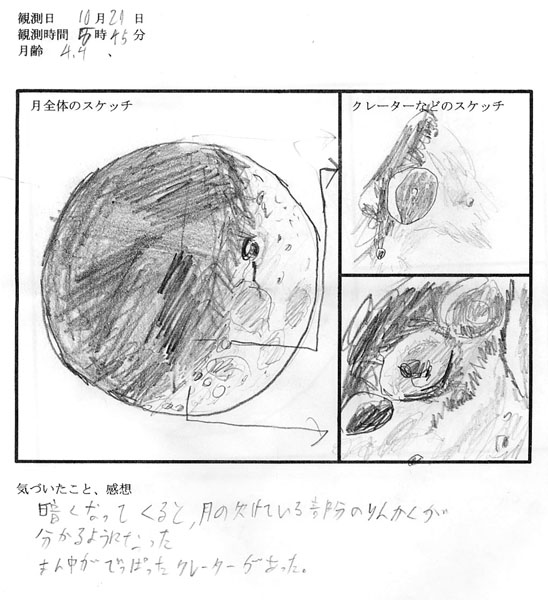 観測日 10月21日
観測時間 5時45分
月齢 4.4
月全体のスケッチ
クレーターなどのスケッチ
気づいたこと、感想
暗くなってくると、月の欠けている部分のりんかくが
分かるようになった
まん中がでっぱったクレーターがあった。